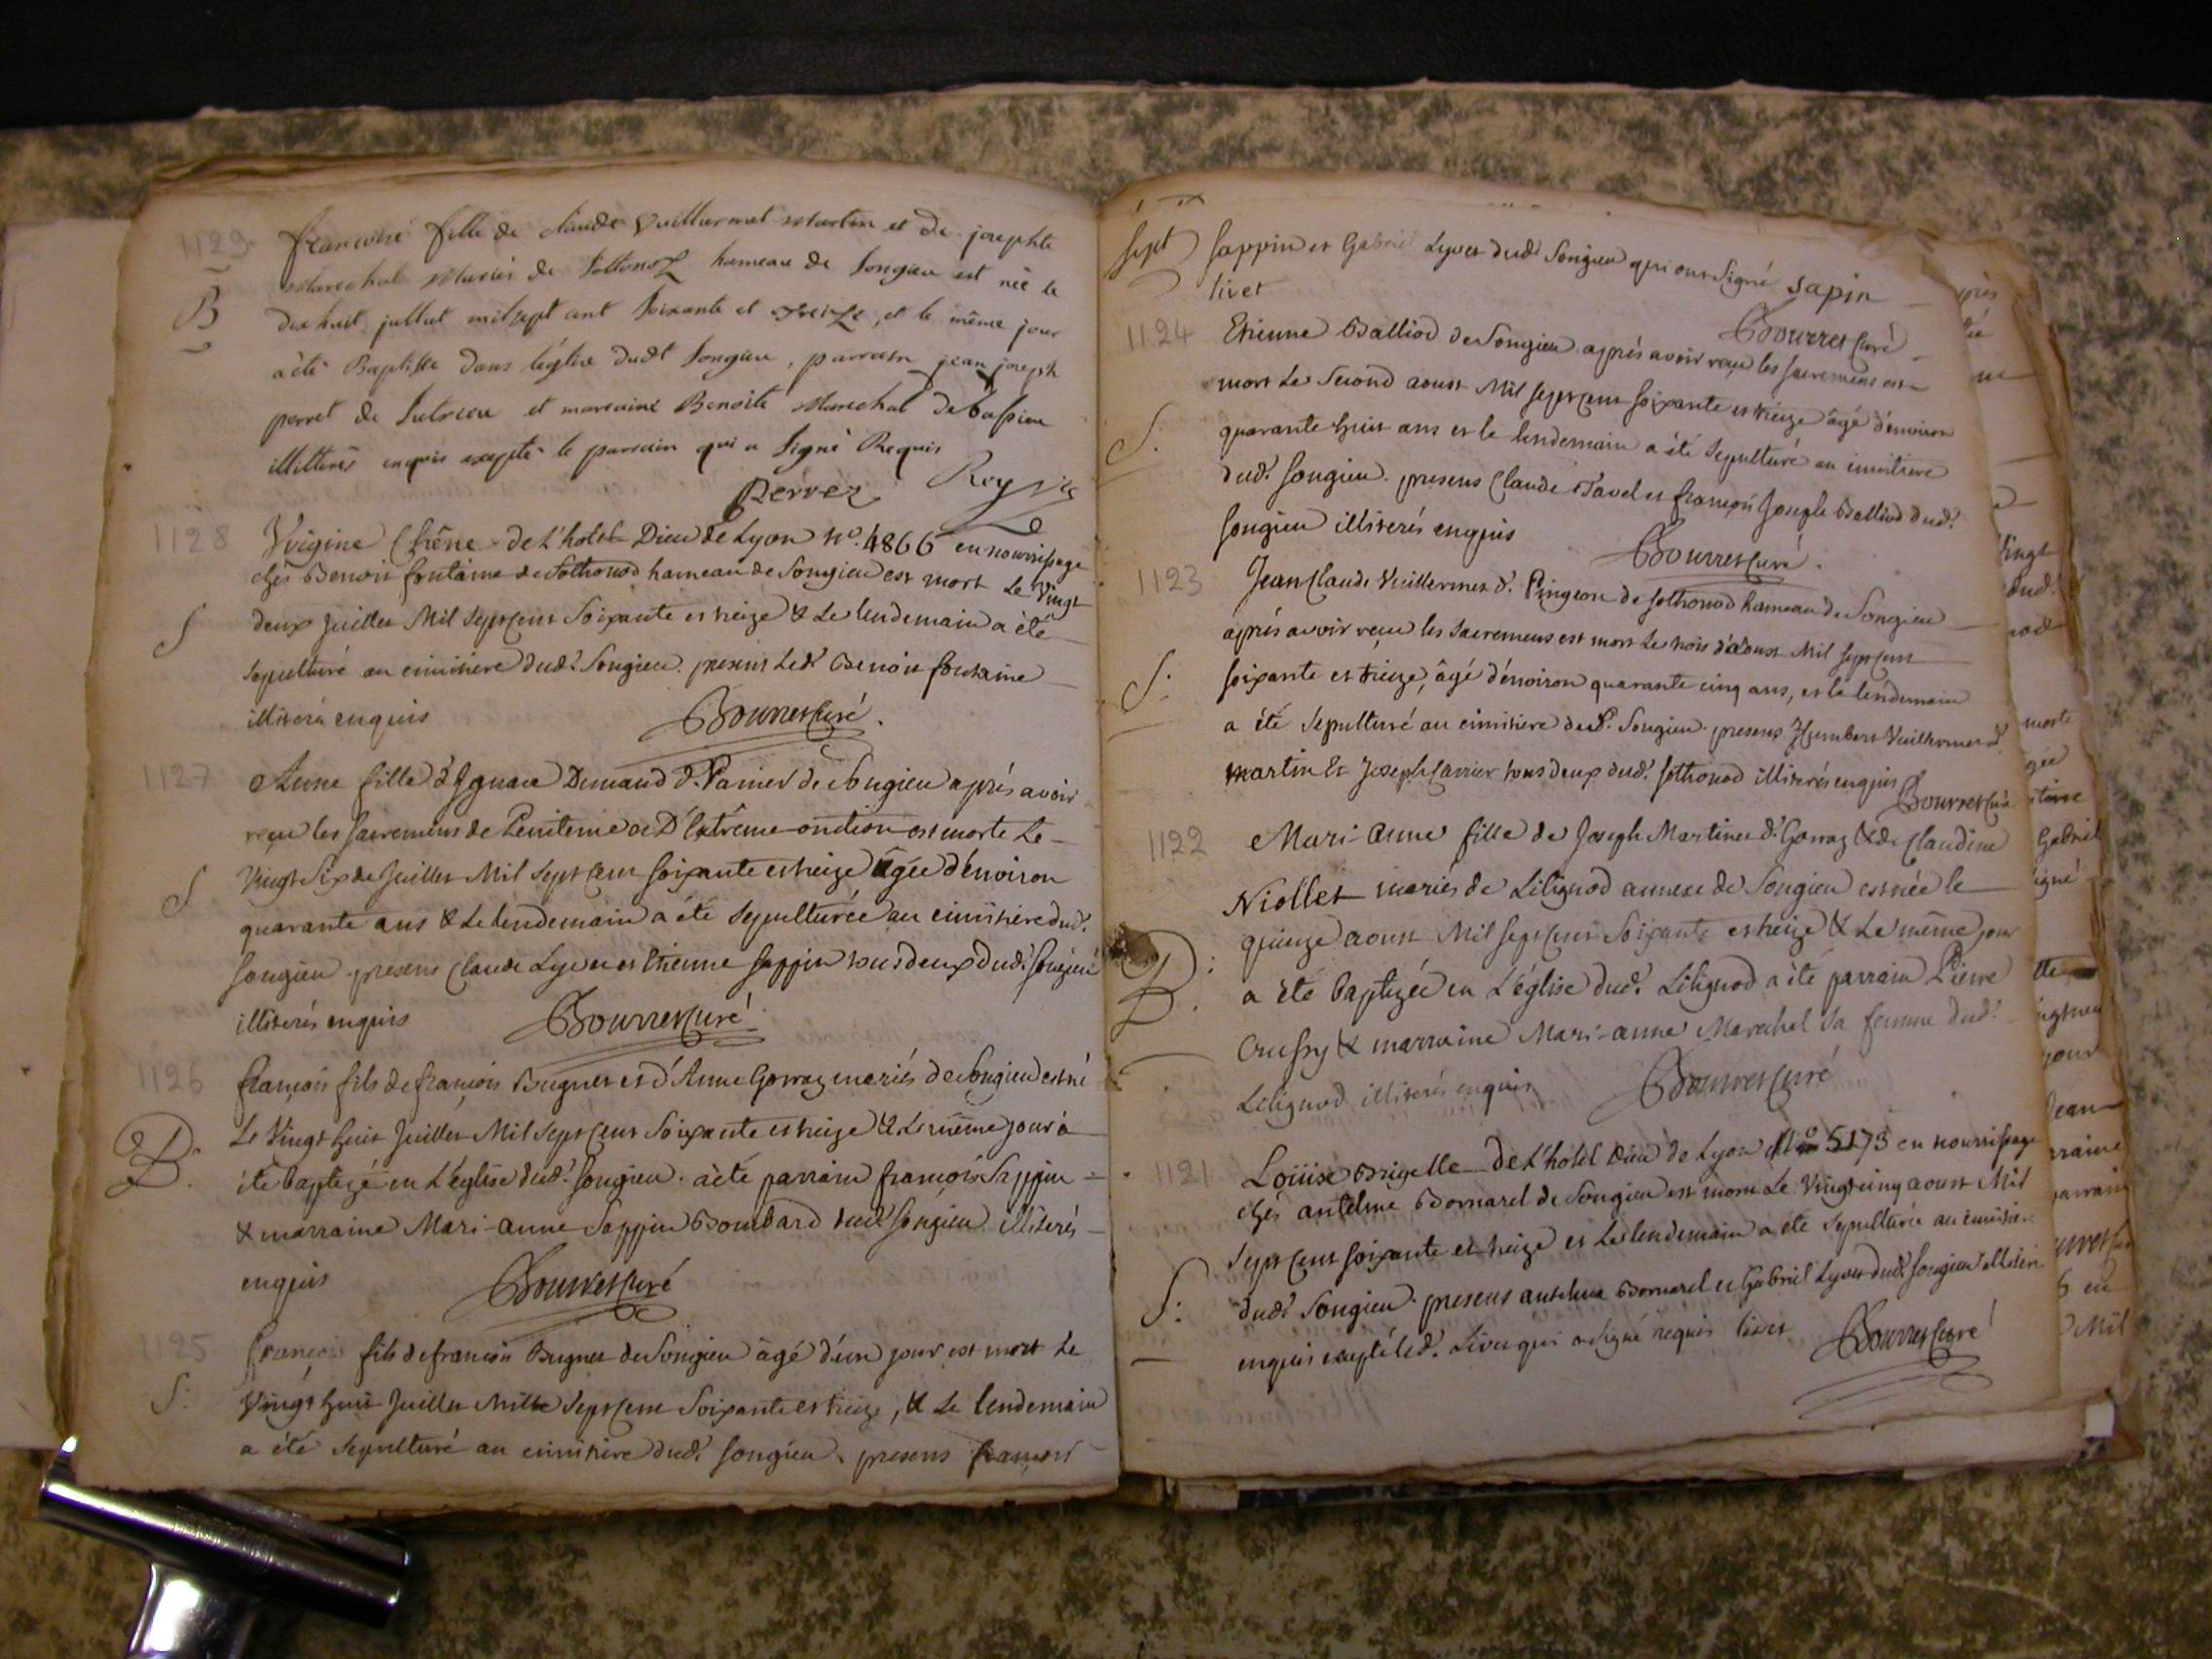 1129
francoise fille de claude Vuillermet Martin et de josephte
B
Marechal Mariés de Sothonoz hameau de Songieu est née le
dix huit juillet mil sept cent soixante et treize, et le même jour
a été Baptisée dans l'église dudt Songieu, parrain jean joseph
perret de Sutrieu et marraine Benoite Marechal de
illitterés enquis excepté le parrain qui a Signé Requis
Perret Roy
1128
Virgine Chêne de L'hotel Dieu de Lyon N°. 4866 en nourrissage
chés Benoit fontaine de Sothonod hameau de Songieu est mort Le Vingt
S
deux Juillet Mil Sept Cent Soixante et treize & Le lendemain a été
sepulturé au cimitiere dudt. Songieu. present Ledt Benoit fontaine
illiteré enquis Bourret Curé.
1127
Anne fille d'Ignace d. Panier de Songieu aprés avoir
reçu les sacremens de Penitence & D'Extrême-onction est morte Le
S
Vingt Six de Juillet Mil Sept Cent soixante et treize âgée d'énviron
quarante ans & Le lendemain a été sepulturée au cimitiere dudt.
Songieu. presens Claude Lyvet et Etienne Sappin tous deux dudt. Songieu
illiterés enquis Bourret Curé
1126
François fils de françois Bugnet et d'Anne Gorraz mariés de Songieu est né
B.
Le Vingt huit Juillet Mil Sept Cent Soixante et treize & Le même jour a
été baptizé en L'église dudt. Songieu. a été parrain françois Sappin =
& marraine Mari-anne Sappin Bombard dudt Songieu illiterés
enquis Bourret Curé
1125
François fils de françois Bugnet de Songieu âgé d'un jour est mort Le
S.
Vingt huit Juillet Mille Sept Cent Soixante et treize, & Le lendemain
a été sepulturé au cimitiere dudt. Songieu. presens françois
sept Sappin et Gabriel Lyvet dudt Songieu qui ont Signé Sapin
livet
Bourret Curé
1124
Etienne Balliod de Songieu aprés avoir reçu les sacremens est
mort Le Second aoust Mil Sept Cent soixante et treize âgé d'énviron
S.
quarante huit ans et le lendemain a été sepulturé au cimitiere
dudt. Songieu. presens Claude Tavel et françois Joseph Balliod dudt.
Songieu illiterés enquis Bourret Curé.
1123
Jean Claude Vuillermet d. Pingeon de Sothonod hameau de Songieu
aprés avoir reçu les sacremens est mort Le trois d'aoust Mil Sept Cent
S.
soixante et treize, âgé d'énviron quarante cinq ans, et le lendemain
a été sepulturé au cimitiere dudt. Songieu. presens Humbert Vuillermet d.
martin & Joseph Carrier tous deux dudt. Sothonod illiterés enquis Bourret Curé
1122
Mari-anne fille de Joseph Martinet d. Gorraz & de Claudine
Niollet mariés de Lilignod annexe de Songieu est née le
quinze aoust Mil Sept Cent Soixante et treize & Le même jour
B.
a été baptizée en L'église dudt. Lilignod a été parrain Pierre
Crussy & marraine Mari-anne Marechal sa femme dudt.
Lilignod illiterés enquis Bourret Curé
1121
Loüise Brigelle de L'hotel Dieu de Lyon N° 5173 en nourrissage
chés antelme Bornarel de Songieu est morte Le Vingt cinq aoust Mil
Sept Cent soixante et treize et Le lendemain a été sepulturée au cimitiere
S.
dudt Songieu. presens antelme Bornarel et Gabriel Lyvet dudt. Songieu illiterés
enquis excepté led. Livet qui a signé requis livet Bourret Curé